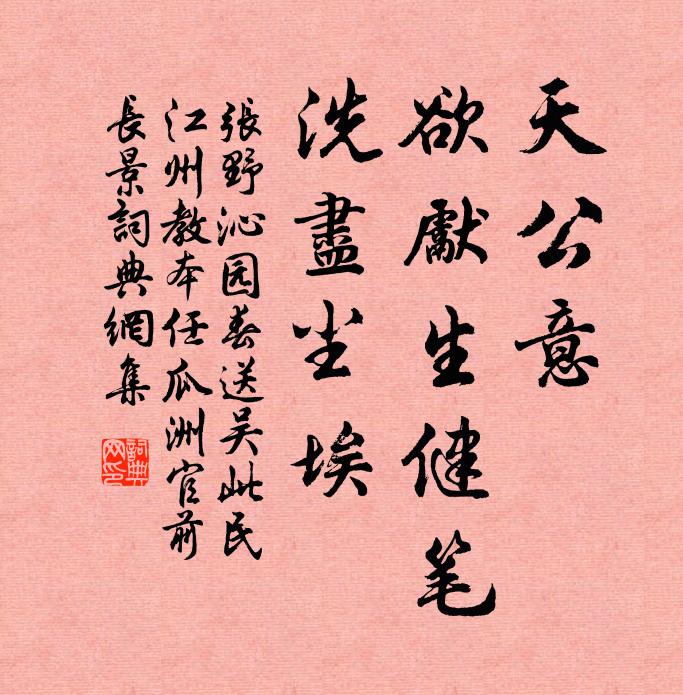 天公意
欲獻生健笔
洗盡尘埃
張野沁园春送吴此民
江州教本任瓜洲官前
長景詞典網集
詞典网印